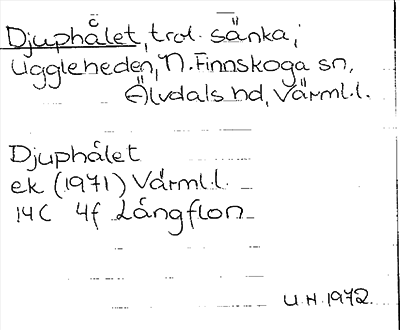 Djuphålet, trol. sänka,
Uggleheden, N. Finnskoga sn,
Älvdals hd, Värml.l.
Djuphålet
ek (1971) Värml.l.
14C 4f Långflon
U.H. 1972.